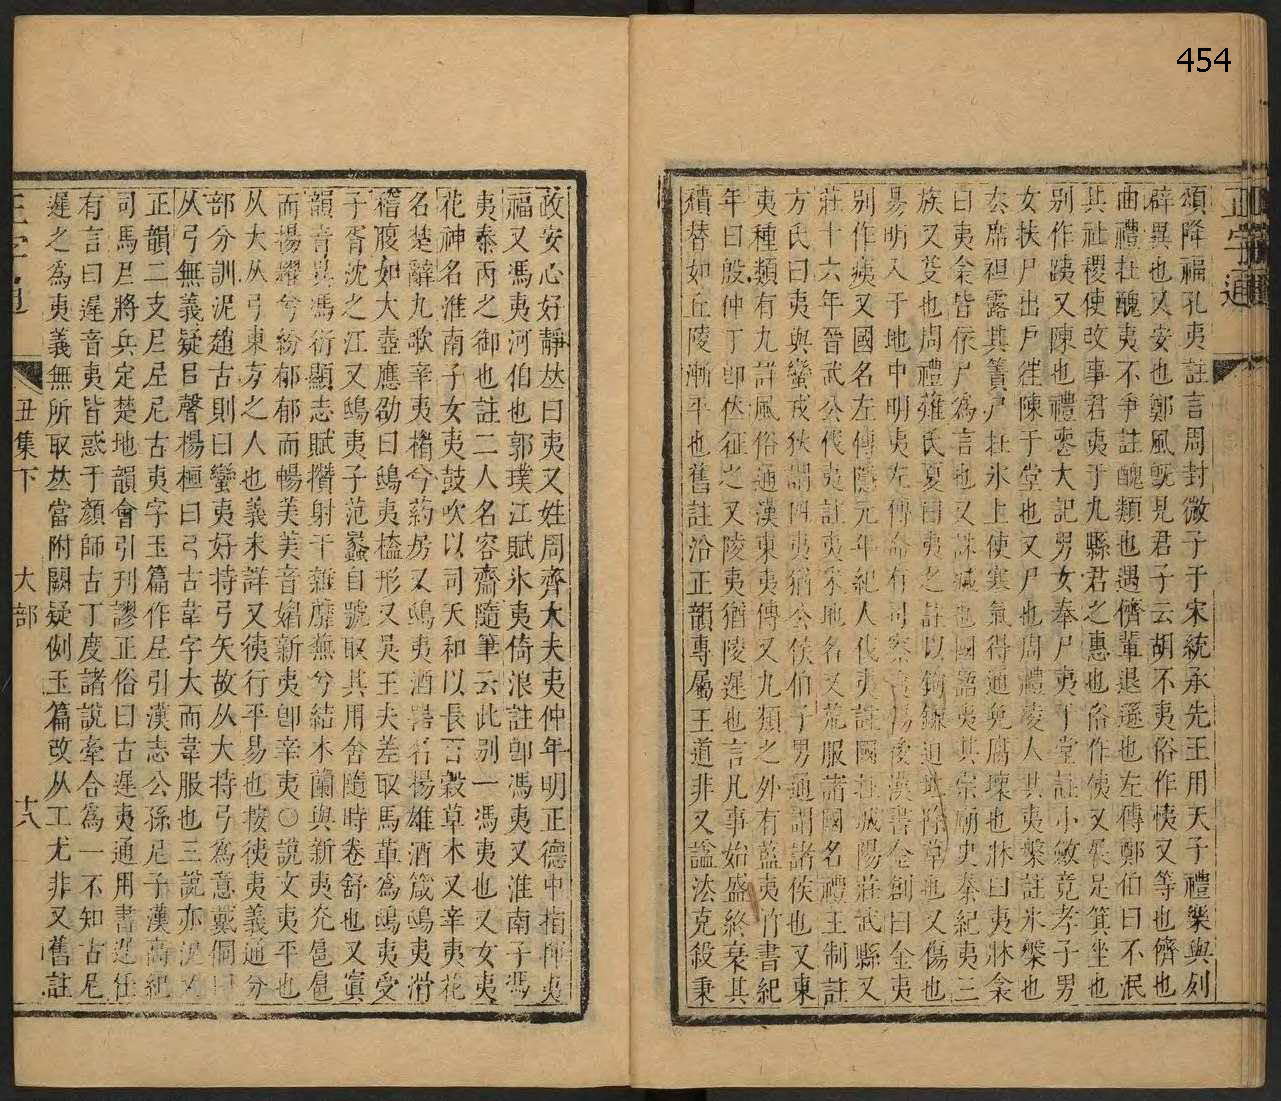 454
正字通
頌降福孔夷註言周封微子于宋統承先王用天子禮樂與列
辟異也又安也鄭風旣見君子云胡不夷俗作恞又等也儕也
曲禮在醜夷不爭註醜類也遇儕輩退遜也左傳鄭伯曰不泯
其社稷使改事君夷于九縣君之惠也俗作侇又展足箕坐也
別作跠又陳也禮喪大記男女奉尸夷于堂註小斂竟孝子男
女扶尸出戶徃陳于堂也又尸也周禮凌人共夷槃註氷槃也
去席袒露其簀尸在氷上使寒氣得通免腐壞也牀曰夷牀衾
曰夷衾皆依尸爲言也又誅滅也國語夷其宗廟史秦紀夷三
族又芟也周禮薙氏夏日夷之註以鉤鎌迫地除草也又傷也
易明入于地中明夷左傳命有司察夷傷後漢書金創曰金夷
別作痍又國名左傳隱元年紀人伐夷註國在城陽莊武縣又
莊十六年晉武公伐夷註夷采地名又荒服諸國名禮王制註
方氏曰夷與蠻戎狄謂四夷猶公侯伯子男通謂諸侯也又東
夷種類有九詳風俗通漢東夷傳又九類之外有藍夷竹書紀
年曰殷仲丁卽位征之又陵夷猶陵遲也言凡事始盛終衰其
積替如丘陵漸平也舊註沿正韻專屬王道非又諡法克殺秉
政安心好靜𠀤曰夷又姓周齊大夫夷仲年明正德中指揮夷
福又馮夷河伯也郭璞江賦氷夷倚浪註卽馮夷又淮南子馮
夷泰丙之御也註二人名容齋隨筆云此別一馮夷也又女夷
花神名淮南子女夷鼓吹以司天和以長言穀草木又辛夷花
名楚辭九歌辛夷楣兮葯房又鴟夷酒器名揚雄酒箴鴟夷滑
稽腹如大壺應劭曰鴟夷榼形又吳王夫差取馬革爲鴟夷受
子胥沈之江又鴟夷子范蠡自號取其用舍隨時卷舒也又寘
韻音異馮衍顯志賦攢射干雜蘼蕪兮結木蘭與新夷充扈扈
而揚耀兮紛郁郁而暢美美音媚新夷卽辛夷〇說文夷平也
从大从弓東方之人也義未詳又徺行平易也按徺夷義通分
部分訓泥趙古則曰蠻夷好持弓矢故从大持弓爲意戴侗曰
从弓無義疑㠯聲楊桓曰弓古韋字大而韋服也三說亦泥
正韻二支𡰥𡰥尼古夷字玉篇作𡰥引漢志公孫𡰥子漢高紀
司馬𡰥將兵定楚地韻會引刋謬正俗曰古遲夷通用書遲任
有言曰遲音夷皆惑于顏師古丁度諸說牽合爲一不知古尼
遲之爲夷義無所取𠀤當附闕疑例玉篇改从工尤非又舊註
正字通 丑集下 大部 十八